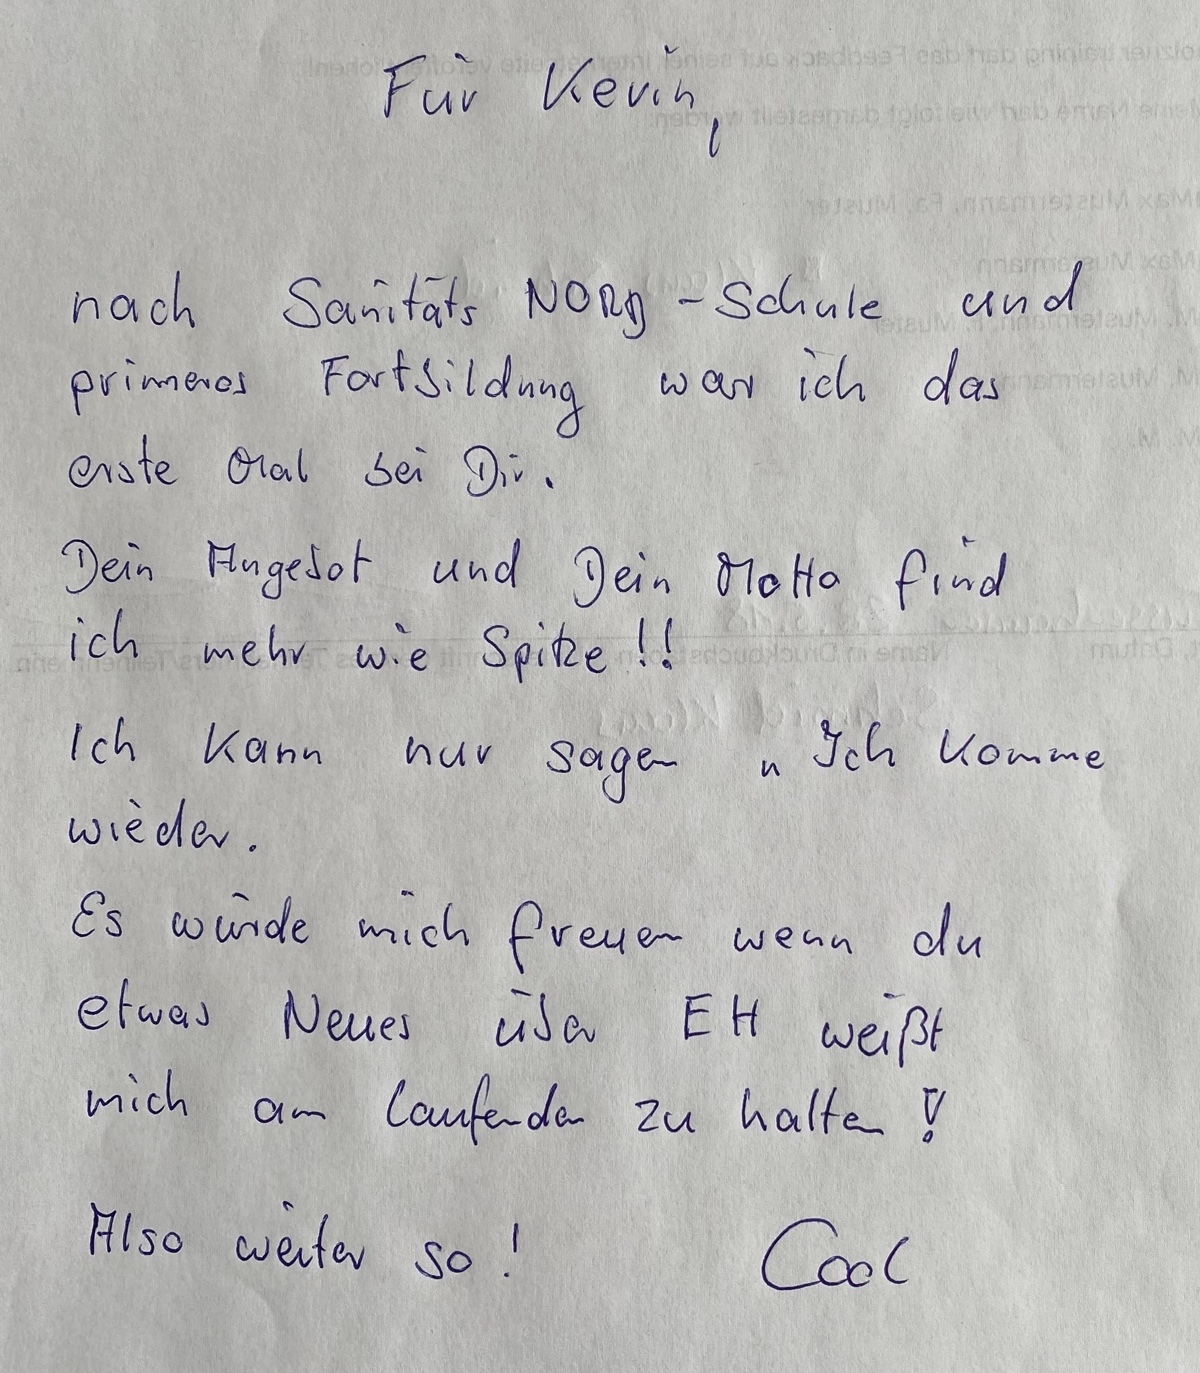 Für Kevin,
nach Sanitäts NORD - Schule und
primeros Fortbildung war ich das
erste Mal bei Dir.
Dein Angebot und Dein Motto find
ich mehr wie Spitze!!
Ich kann nur sagen „Ich komme
wieder.
Es würde mich freuen wenn du
etwas Neues über EH weißt
mich am laufenden zu halten!
Also weiter so! Cool